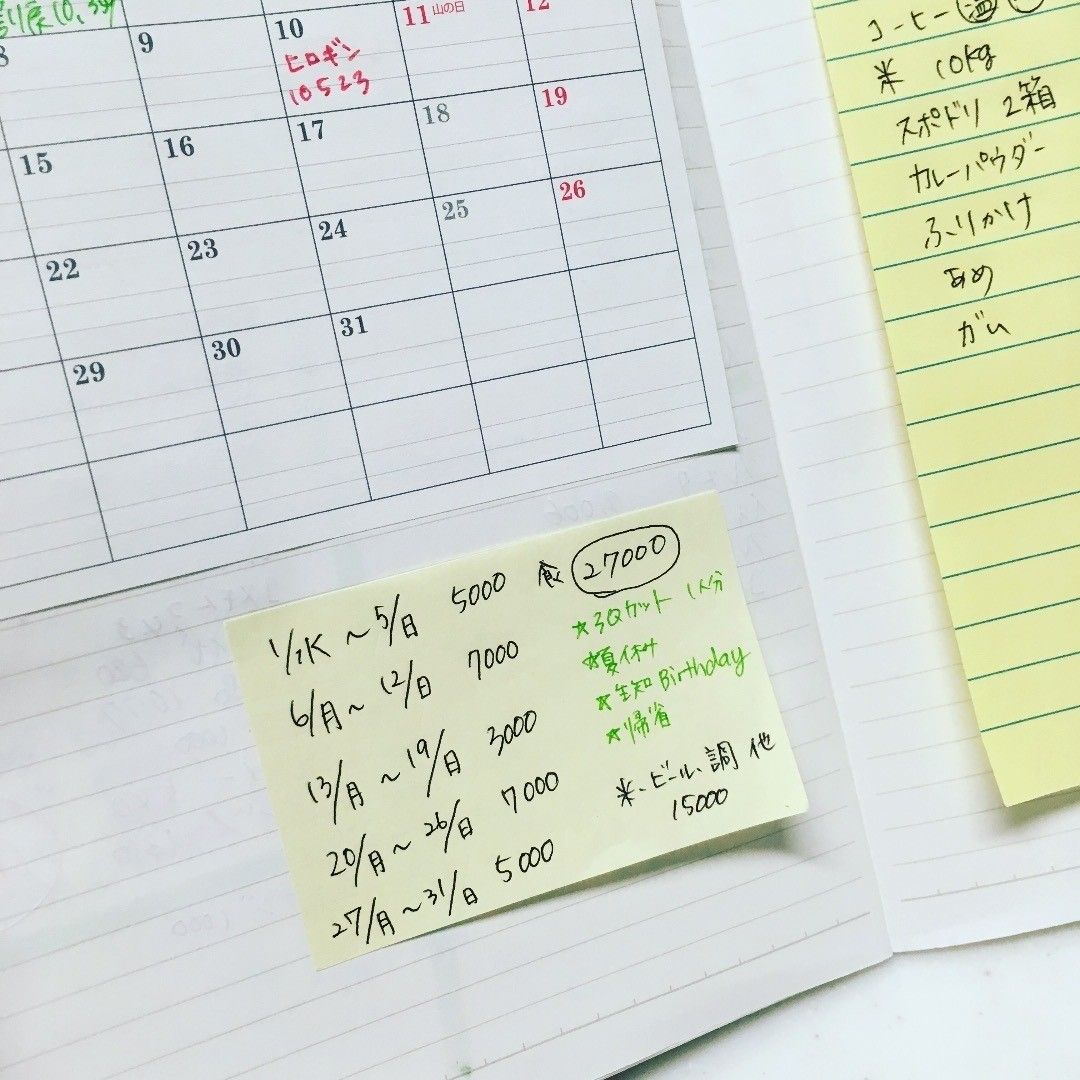 8
9
10
ヒロギン
10523
11 山の日
12
15
16
17
18
19
22
23
24
25
26
29
30
31
コーヒー
米 10kg
スポドリ 2箱
カレーパウダー
ふりかけ
あめ
ガム
食 27000
~5/日 5000
6/月~12/日 7000
13/月~19/日 3000
20/月~26/日 7000
27/月~31/日 5000
☆3Qカット 1人分
☆夏休み
☆ Birthday
☆帰省
米、ビール、調 他
15000